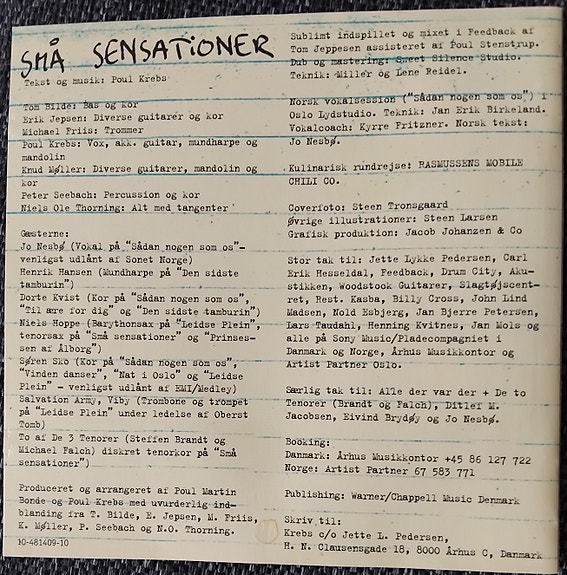 SMÅ SENSATIONER
Tekst og musik: Poul Krebs
Tom Bilde: Bas og kor
Erik Jepsen: Diverse guitarer og kor
Michael Friis: Trommer
Poul Krebs: Vox, akk. guitar, mundharpe og
mandolin
Knud Møller: Diverse guitarer, mandolin og
kor
Peter Seebach: Percussion og kor
Niels Ole Thorning: Alt med tangenter
Gæsterne:
Jo Nesbø (Vokal på "Sådan nogen som os"-
venligst udlånt af Sonet Norge)
Henrik Hansen (Mundharpe på "Den sidste
tamburin")
Dorte Kvist (Kor på "Sådan nogen som os",
"Til ære for dig" og "Den sidste tamburin")
Niels Hoppe (Barythonsax på "Leidse Plein",
tenorsax på "Små sensationer" og "Prinses-
sen af Ålborg")
Søren Sko (Kor på "Sådan nogen som os",
"Vinden danser", "Nat i Oslo" og "Leidse
Plein" - venligst udlånt af EMI/Medley)
Salvation Army, Viby (Trombone og trompet
på "Leidse Plein" under ledelse af Oberst
Tomb)
To af De 3 Tenorer (Steffen Brandt og
Michael Falch) diskret tenorkor på "Små
sensationer")
Produceret og arrangeret af Poul Martin
Bonde og Poul Krebs med uvurderlig ind-
blanding fra T. Bilde, E. Jepsen, M. Friis,
K. Møller, P. Seebach og N.O. Thorning.
10-481409-10
Sublimt indspillet og mixet i Feedback af
Tom Jeppesen assisteret af Poul Stenstrup.
Dub og mastering: Sweet Silence Studio.
Teknik: Miller og Lene Reidel.
Norsk vokalsession ("Sådan nogen som os") i
Oslo Lydstudio. Teknik: Jan Erik Birkeland.
Vokalcoach: Kyrre Fritzner. Norsk tekst:
Jo Nesbø.
Kulinarisk rundrejse: RASMUSSENS MOBILE
CHILI CO.
Coverfoto: Steen Tronsgaard
Øvrige illustrationer: Steen Larsen
Grafisk produktion: Jacob Johanzen & Co
Stor tak til: Jette Lykke Pedersen, Carl
Erik Hesseldal, Feedback, Drum City, Aku-
stikken, Woodstook Guitarer, Slagtøjscent-
ret, Rest. Kasba, Billy Cross, John Lind
Madsen, Nold Esbjerg, Jan Bjerre Petersen,
Lars Taudahl, Henning Kvitnes, Jan Mols og
alle på Sony Music/Pladecompagniet i
Danmark og Norge, Århus Musikkontor og
Artist Partner Oslo.
Særlig tak til: Alle der var der + De to
Tenorer (Brandt og Falch), Ditlef M.
Jacobsen, Eivind Brydøy og Jo Nesbø.
Booking:
Danmark: Århus Musikkontor +45 86 127 722
Norge: Artist Partner 67 583 771
Publishing: Warner/Chappell Music Denmark
Skriv til:
Krebs c/o Jette L. Pedersen,
H. N. Clausensgade 18, 8000 Århus C, Danmark